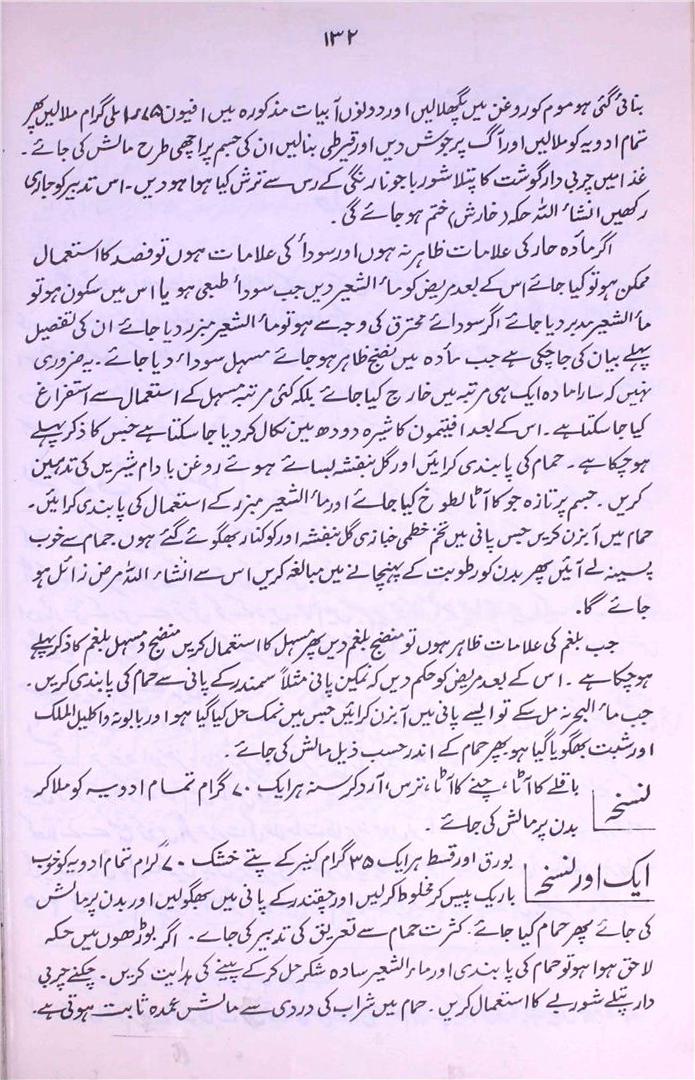 ۱۳۲
بنائی گئی ہو موم کو روغن میں پگھلالیں اور دونوں آبیات مذکورہ میں افیون ۸۷۵ء۱ ملی گرام ملالیں پھر
تمام ادویہ کو ملالیں اور آگ پر جوش دیں اور قیرطی بنالیں ان کی جسم پر اچھی طرح مالش کی جائے۔
غذا میں چربی دار گوشت کا پتلا شوربا جو نارنگی کے رس سے ترش کیا ہوا ہو دیں۔ اس تدبیر کو جاری
رکھیں انشاء اللہ حکہ (خارش) ختم ہو جائے گی۔
اگر مادہ حار کی علامات ظاہر نہ ہوں اور سوداء کی علامات ہوں تو فصد کا استعمال
ممکن ہو تو کیا جائے اس کے بعد مریض کو ماء الشعیر دیں جب سوداء طبعی ہو یا اس میں سکون ہو تو
ماء الشعیر مدبر دیا جائے اگر سودائے محترق کی وجہ سے ہو تو ماء الشعیر مبزر دیا جائے ان کی تفصیل
پہلے بیان کی جاچکی ہے جب مادہ میں نضج ظاہر ہو جائے مسہل سوداء دیا جائے۔ یہ ضروری
نہیں کہ سارا مادہ ایک ہی مرتبہ میں خارج کیا جائے بلکہ کئی مرتبہ مسہل کے استعمال سے استفراغ
کیا جاسکتا ہے۔ اس کے بعد افیتمون کا شیرہ دودھ میں نکال کر دیا جاسکتا ہے جس کا ذکر پہلے
ہوچکا ہے۔ حمام کی پابندی کرائیں اور گل بنفشہ بسائے ہوئے روغن بادام شیریں کی تدہین
کریں۔ جسم پر تازہ جو کا آٹا لطوخ کیا جائے اور ماء الشعیر مبزر کے استعمال کی پابندی کرائیں۔
حمام میں آبزن کریں جس پانی میں تخم خطمی خبازی گل بنفشہ اور کوکنار بھگوئے گئے ہوں۔ حمام سے خوب
پسینہ لے آئیں پھر بدن کو رطوبت کے پہنچانے میں مبالغہ کریں اس سے انشاء اللہ مرض زائل ہو
جائے گا۔
جب بلغم کی علامات ظاہر ہوں تو منضج بلغم دیں پھر مسہل کا استعمال کریں منضج و مسہل بلغم کا ذکر پہلے
ہوچکا ہے۔ اس کے بعد مریض کو حکم دیں کہ نمکین پانی مثلاً سمندر کے پانی سے حمام کی پابندی کریں۔
جب ماء البحر نہ مل سکے تو ایسے پانی میں آبزن کرائیں جس میں نمک حل کیا گیا ہو اور بابونہ واکلیل الملک
اور شبت بھگویا گیا ہو پھر حمام کے اندر حسب ذیل مالش کی جائے
نسخہ باقلے کا آٹا، چنے کا آٹا، ترس، آرد کرسنہ ہر ایک ۷۰ گرام تمام ادویہ کو ملا کر
بدن پر مالش کی جائے۔
ایک اور نسخہ بورق اور قسط ہر ایک ۳۵ گرام کنیر کے پتے خشک ۷۰ گرام تمام ادویہ کو خوب
باریک پیس کر مخلوط کرلیں اور چقندر کے پانی میں بھگولیں اور بدن پر مالش
کی جائے پھر حمام کیا جائے۔ کثرت حمام سے تعریق کی تدبیر کی جاے۔ اگر بوڑھوں میں حکہ
لاحق ہوا ہو تو حمام کی پابندی اور ماء الشعیر سادہ شکر حل کرکے پینے کی ہدایت کریں۔ چکنے چربی
دار پتلے شوربے کا استعمال کریں۔ حمام میں شراب کی دردی سے مالش عمدہ ثابت ہوتی ہے۔